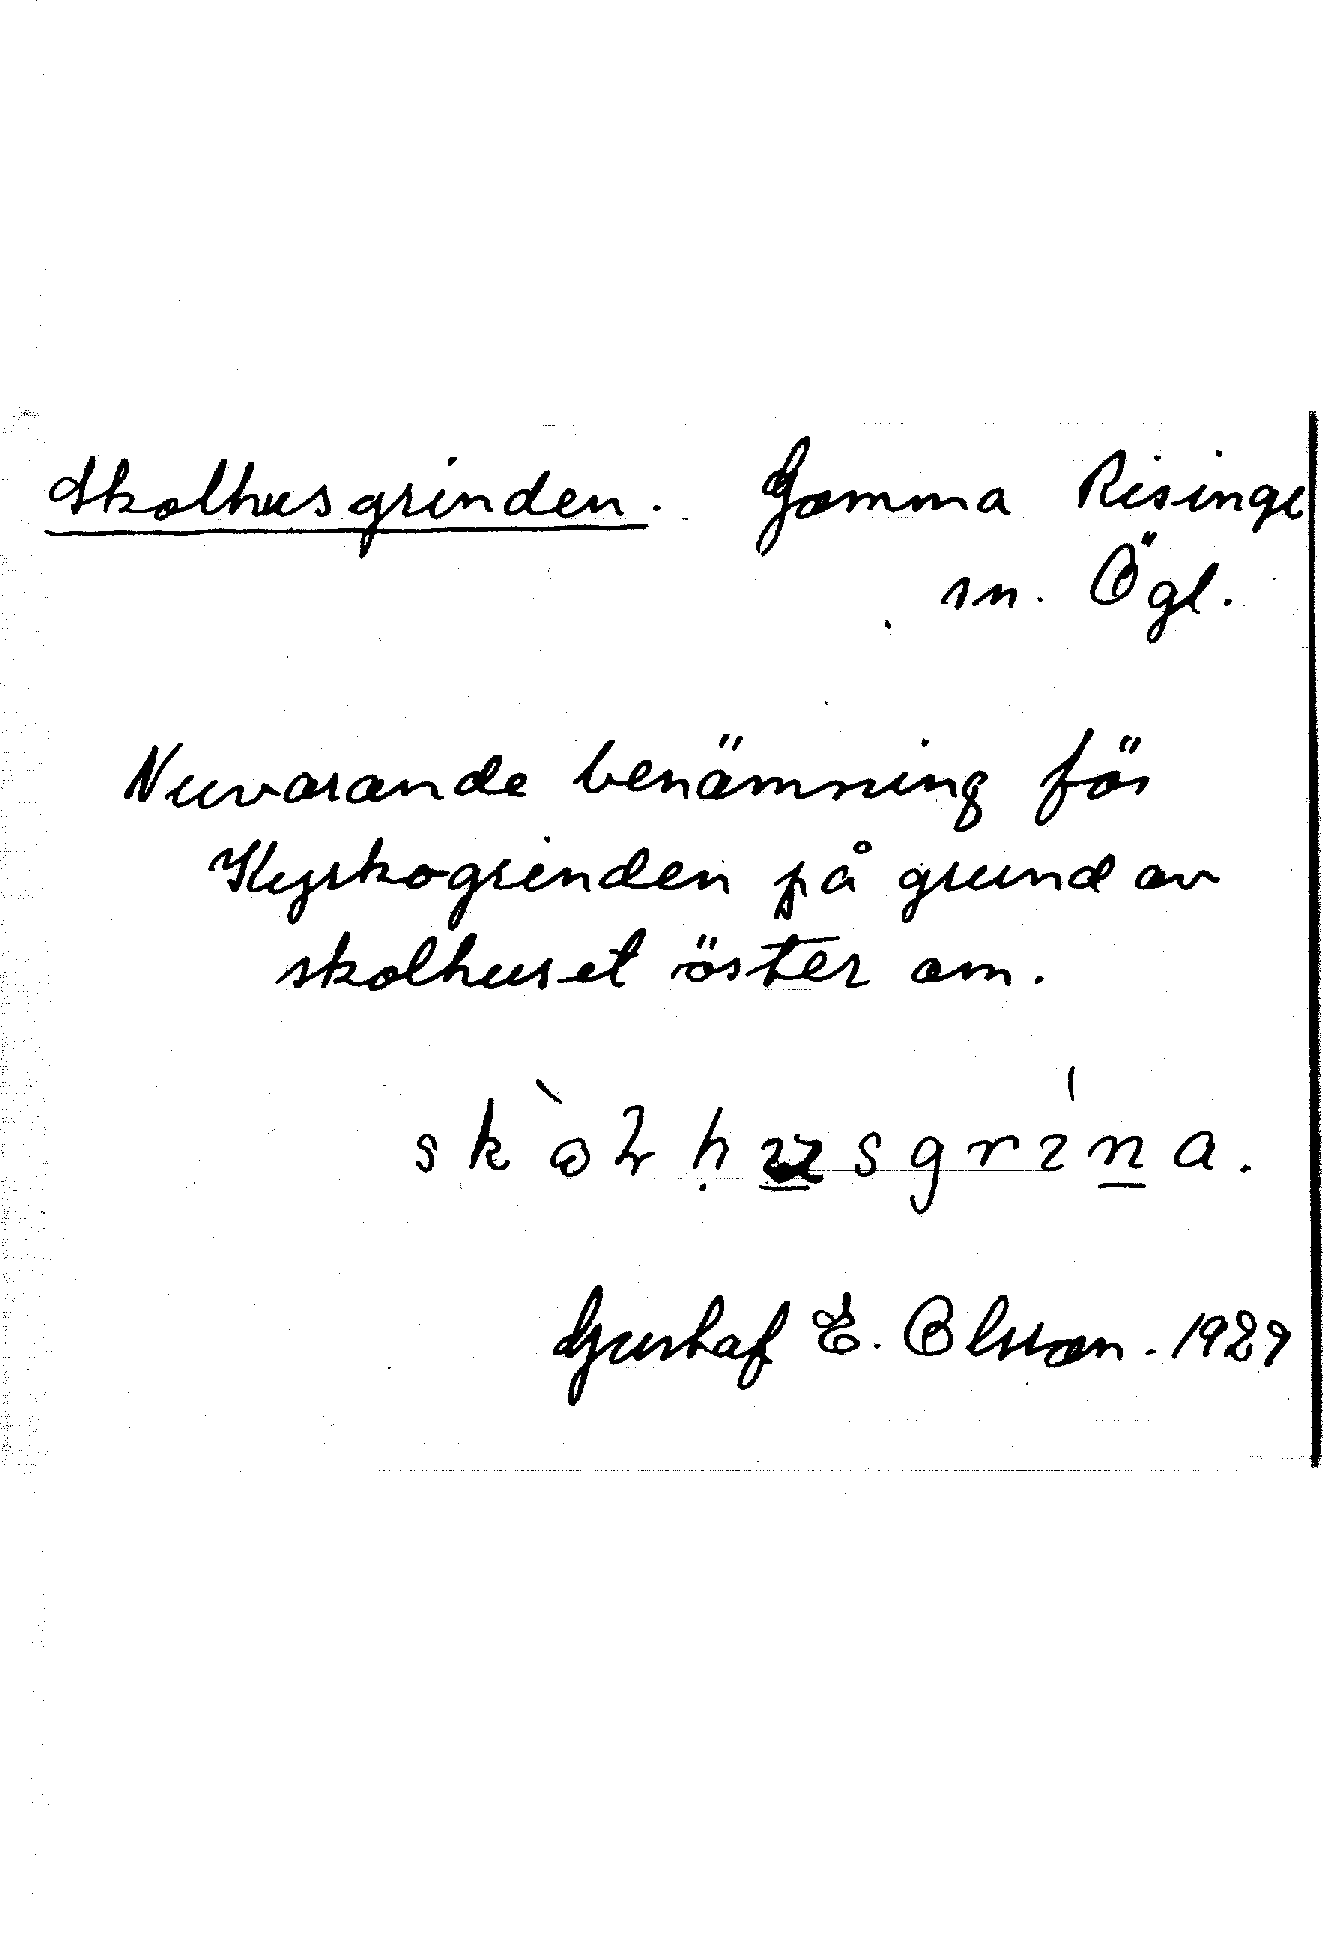 Skolhusgrinden. Gomma Risinge
sn. Ögl.
Nuvarande benämning för
Kyrkogrinden på grund av
skolhuset öster om.
Gustaf E. Olsson. 1929